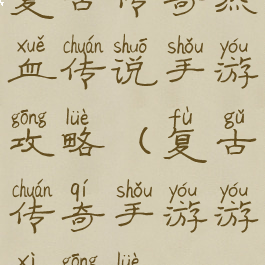 复古传奇热
xuě chuán shuō shǒu yóu
血传说手游
gōng lüè fù gǔ
攻略(复古
chuán qí shǒu yóu yóu
传奇手游游
xì gōng lüè